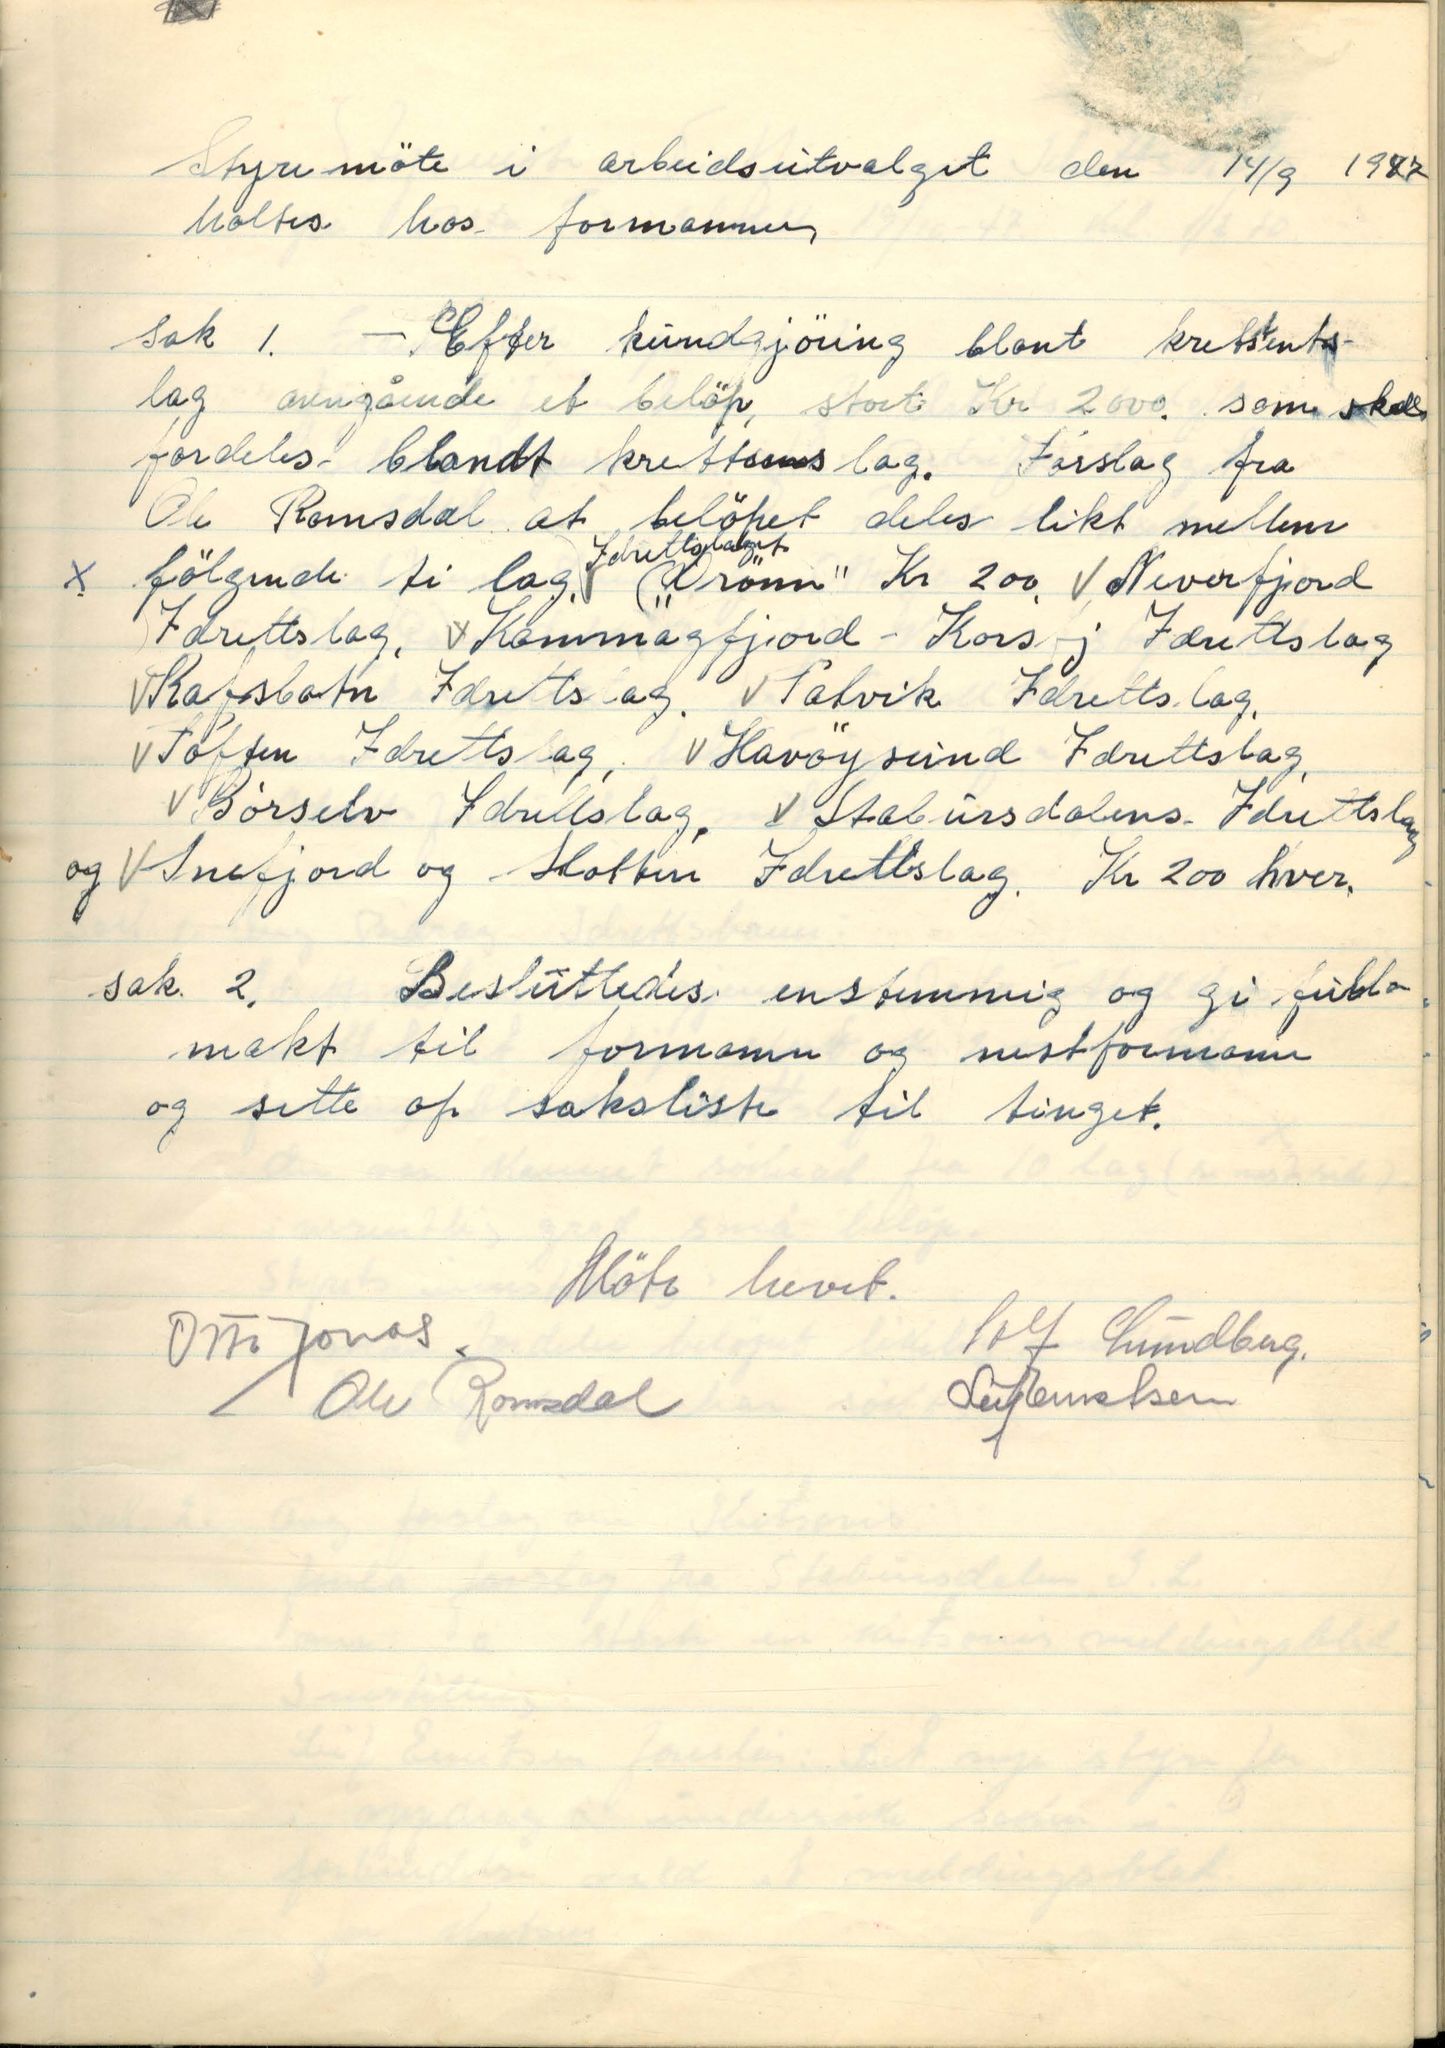 Styremöte i arbeidsutvalget den 14/9 1947
holtes hos formannen
sak 1. — Efter kundgjöring blant kretsens
lag avengående et belöp, stort Kr 2000. som skal
fordeles blandt kretsens lag. Forslag fra
Ole Romsdal at belöpet deles likt mellem
x fölgende ti lag. V Idrettslaget "Drönn" Kr 200. V Neverfjord
Idrettslag, V Kommagfjord - Korsfj Idrettslag
V Rafsbotn Idrettslag. V Talvik Idrettslag.
V Toften Idrettslag, V Havöysund Idrettslag,
V Börselv Idrettslag, V Stabursdalens Idrettslag
og V Snefjord og Slotten Idrettslag. Kr 200 hver.
sak 2. Besluttedes enstemmig og gi full
makt til formann og nestformann
og sette op saksliste til tinget.
Möte hevet.
Otto Jonas. Lundberg.
Ole Romsdal Leif Ernstsen